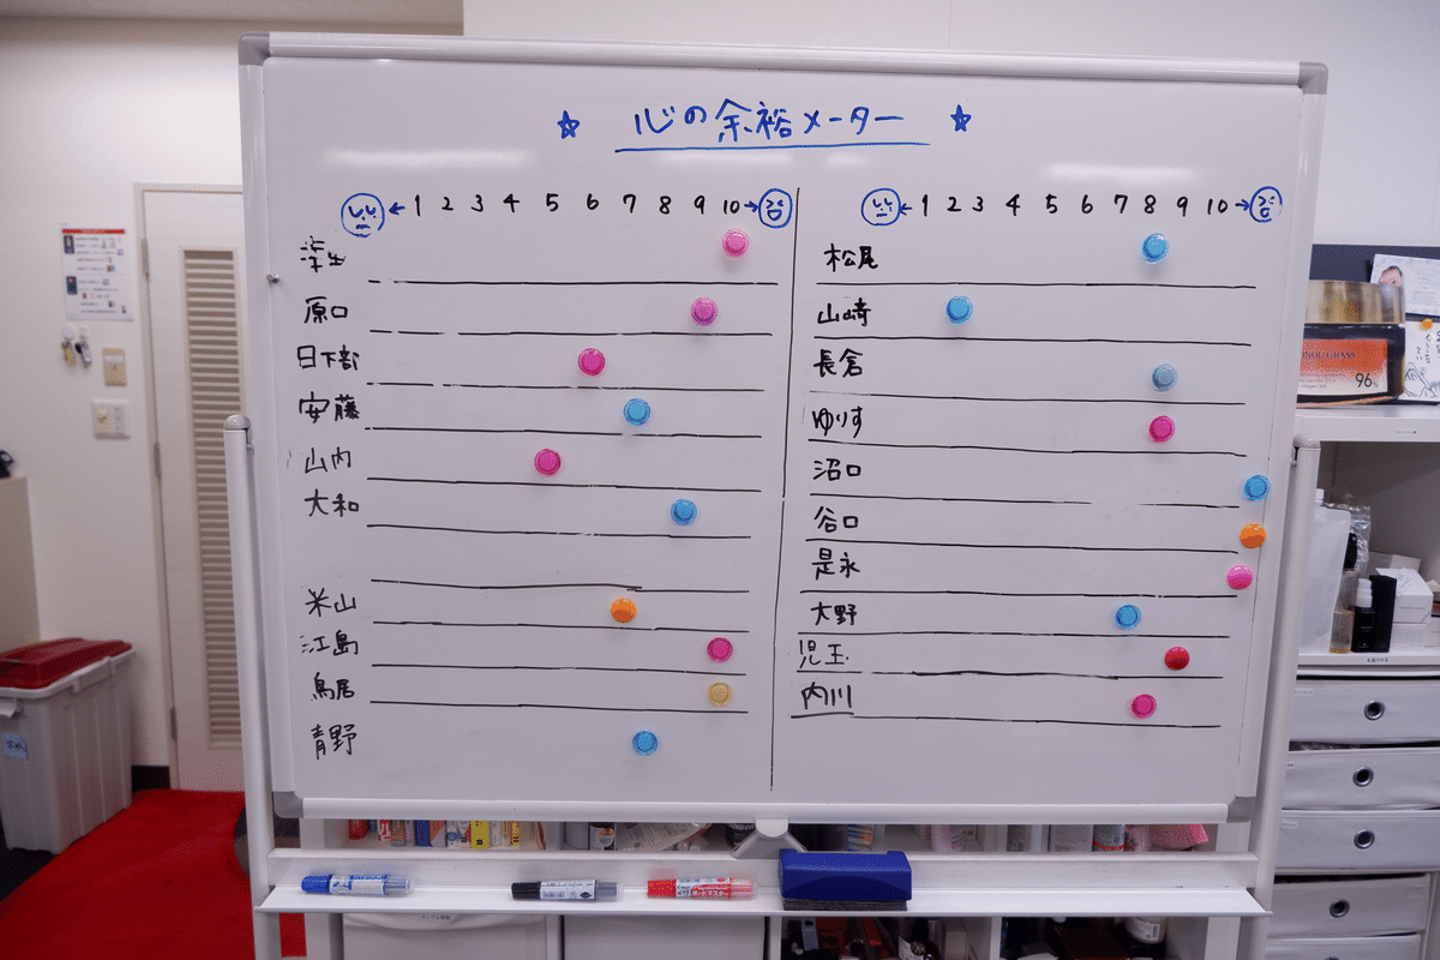 ☆ 心の余裕メーター ☆
← 1 2 3 4 5 6 7 8 9 10 →
原口
日下部
安藤
山内
大和
米山
江島
鳥居
青野
← 1 2 3 4 5 6 7 8 9 10 →
松尾
山崎
長倉
ゆりす
沼口
谷口
是永
大野
児玉
内川
96%
ボードマスター